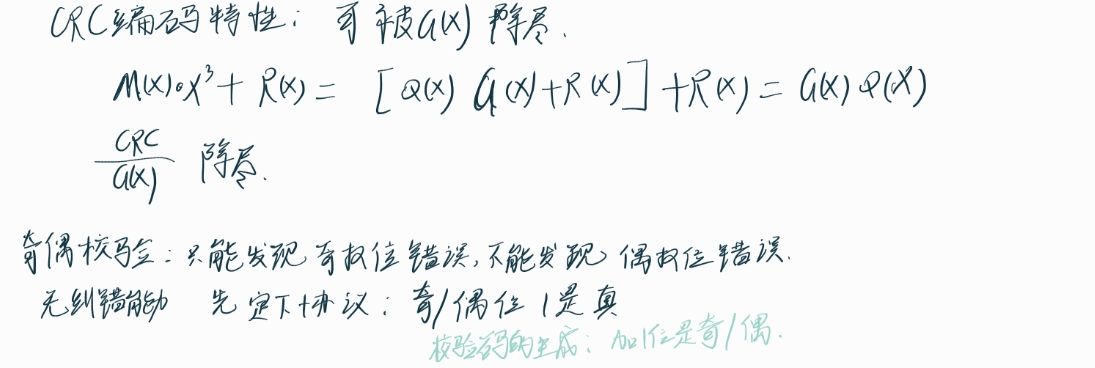 CRC编码特性：可被G(X)除尽.
M(X)·X³+R(X)=[Q(X)G(X)+R(X)]+R(X)=G(X)Q(X)
CRC/G(X) 除尽.
奇偶校验：只能发现奇数位错误,不能发现偶数位错误.
无纠错能力 先定下协议：奇/偶位1是真
校验码的生成：加1位是奇/偶.